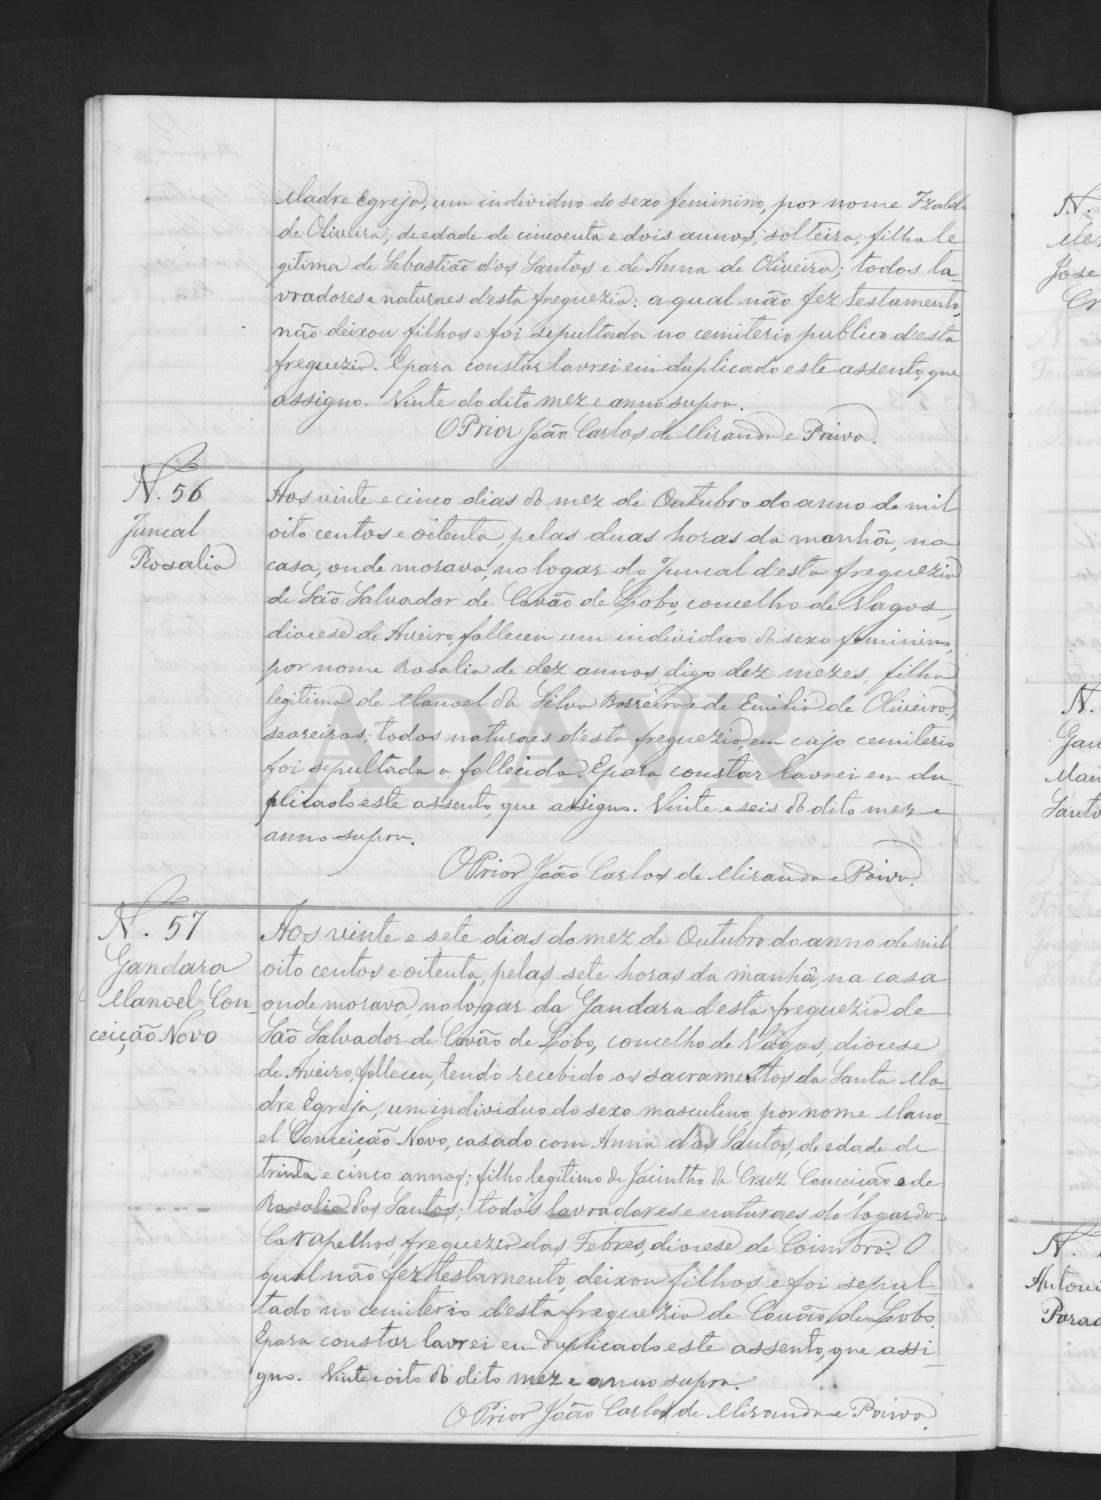 Madre Egreja, um individuo do sexo feminino, por nome Izabel
de Oliveira, de edade de cincoenta e dois annos, solteira, filha le
gitima de Sebastião dos Santos e de Anna de Oliveira; todos la
vradores e naturaes d'esta freguezia: a qual não fez testamento,
não deixou filhos e foi sepultada no cemiterio publico d'esta
freguezia. E para constar lavrei em duplicado este assento, que
assigno. Vinte do dito mez e anno supra.
O Prior João Carlos de Miranda e Paiva.
N. 56
Juncal
Rosalia
Aos vinte e cinco dias do mez de Outubro do anno de mil
oito centos e oitenta, pelas duas horas da manhã, na
casa, onde morava, no logar do Juncal d'esta freguezia
de São Salvador de Covão de Lobo, concelho de Vagos,
diocese de Aveiro, falleceu um individuo do sexo feminino,
por nome Rosalia de dez annos, digo dez mezes, filha
legitima de Manoel da Silva Barreira e de Emilia de Oliveira,
seareiros; todos naturaes d'esta freguezia, em cujo cemiterio
foi sepultada a fallecida. E para constar lavrei em du
plicado este assento, que assigno. Vinte e seis do dito mez e
anno supra.
O Prior João Carlos de Miranda e Paiva.
N. 57
Gandara
Manoel Con
ceição Novo
Aos vinte e sete dias do mez de Outubro do anno de mil
oito centos e oitenta, pelas sete horas da manhã, na casa
onde morava, no logar da Gandara d'esta freguezia de
São Salvador de Covão de Lobo, concelho de Vagos, diocese
de Aveiro, falleceu, tendo recebido os sacramentos da Santa Ma-
dre Egreja, um individuo do sexo masculino, por nome Mano-
el Conceição Novo, casado com Anna dos Santos, de edade de
trinta e cinco annos; filho legitimo de Jacintho da Cruz Conceição e de
Rosalia dos Santos; todos lavradores e naturaes do logar do
Carapelhos, freguezia das Febres, diocese de Coimbra. O
qual não fez testamento, deixou filhos e foi sepul-
tado no cemiterio d'esta freguezia de Covão de Lobo.
E para constar lavrei em duplicado este assento, que assi-
gno. Vinte e oito do dito mez e anno supra.
O Prior João Carlos de Miranda e Paiva.
ADAVR
N.
Jose
N.
Gan
Man
Santo
N.
Antoni
Parad